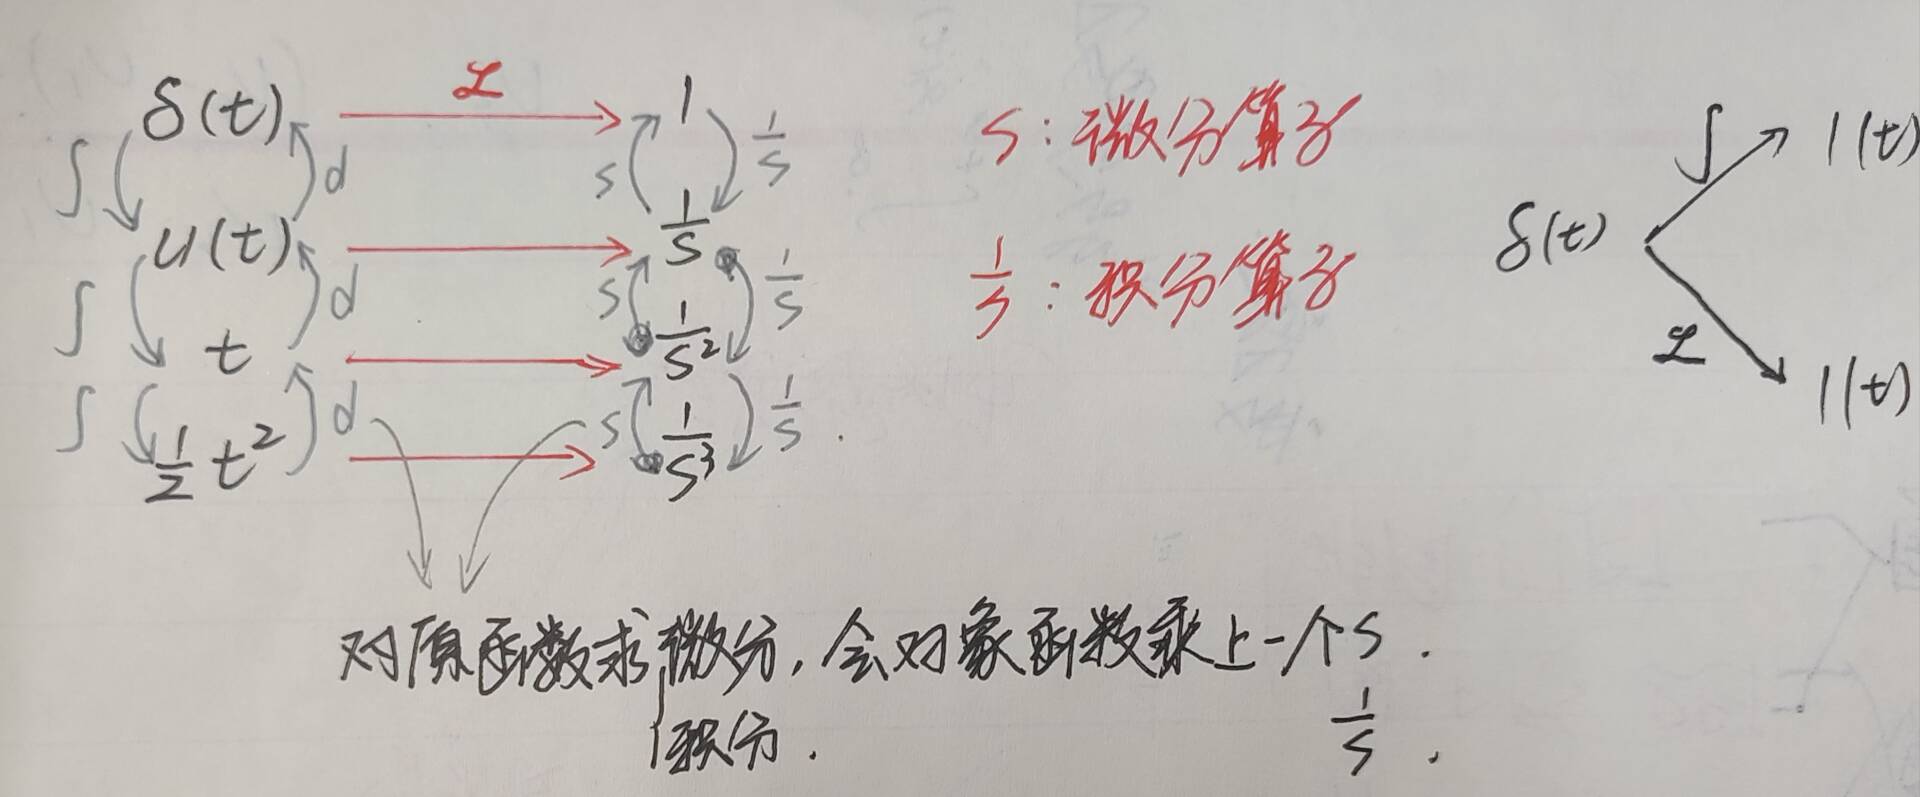 δ(t) ℒ 1
∫ d s 1/s
u(t) 1/s
∫ d s 1/s
t 1/s²
∫ d s 1/s
1/2 t² 1/s³
s：微分算子
1/s：积分算子
δ(t) ∫ 1(t)
ℒ 1(t)
对原函数求微分，会对象函数乘上一个s.
积分. 1/s.